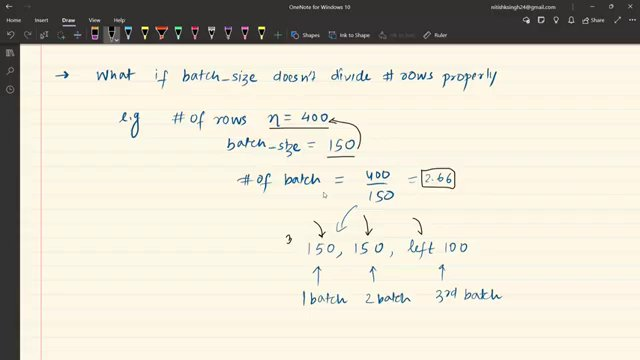 OneNote for Windows 10
nitishksingh24@gmail.com
Home Insert Draw View Help
Shapes Ink to Shape Ink to Text Math
→ What if batch_size doesn't divide # rows properly
e.g # of rows n = 400
batch_size = 150
# of batch = 400/150 = 2.66
3 150, 150, left 100
1 batch 2 batch 3rd batch